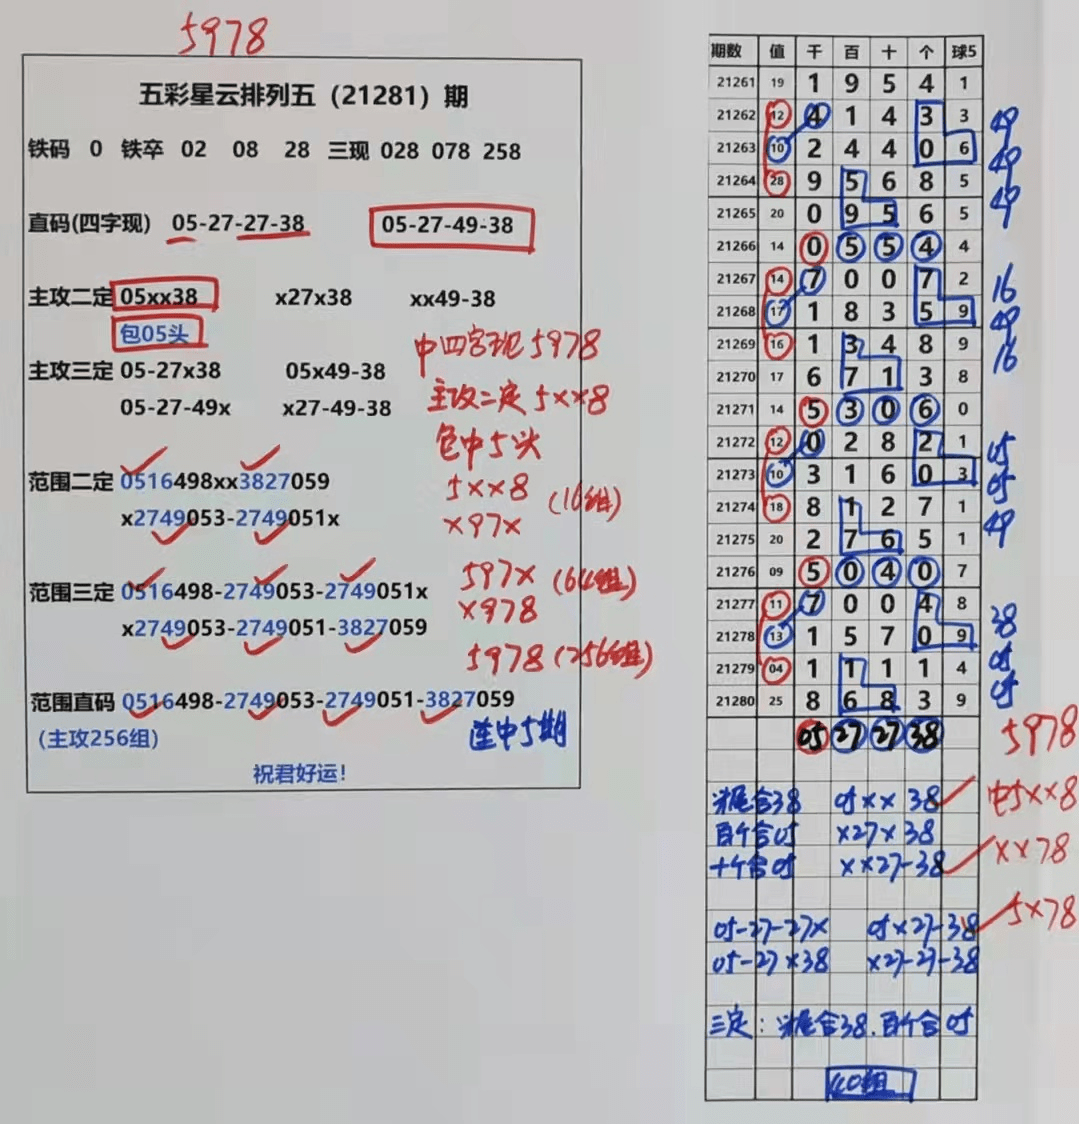 5978
五彩星云排列五（21281）期
铁码 0 铁卒 02 08 28 三现 028 078 258
直码(四字现) 05-27-27-38 05-27-49-38
主攻二定 05xx38 x27x38 xx49-38
包05头
中四字现5978
主攻三定 05-27x38 05x49-38
主攻二定5xx8
05-27-49x x27-49-38
包中5头
范围二定 0516498xx3827059
5xx8 (16组)
x2749053-2749051x
x97x
范围三定 0516498-2749053-2749051x
597x (64组)
x2749053-2749051-3827059
x978
5978 (256组)
范围直码 0516498-2749053-2749051-3827059
(主攻256组)
连中5期
祝君好运!
期数 值 千 百 十 个 球5
21261 19 1 9 5 4 1
21262 12 4 1 4 3 3 49
21263 10 2 4 4 0 6 49
21264 28 9 5 6 8 5 49
21265 20 0 9 5 6 5
21266 14 0 5 5 4 4
21267 14 7 0 0 7 2 16
21268 17 1 8 3 5 9 49
21269 16 1 3 4 8 9 16
21270 17 6 7 1 3 8
21271 14 5 3 0 6 0
21272 12 0 2 8 2 1 05
21273 10 3 1 6 0 3 05
21274 18 8 1 2 7 1 49
21275 20 2 7 6 5 1
21276 09 5 0 4 0 7
21277 11 7 0 0 4 8 38
21278 13 1 5 7 0 9 05
21279 04 1 1 1 1 4 05
21280 25 8 6 8 3 9
05 27 27 38 5978
头尾合38 05xx 38 中5xx8
百个合05 x27x38
十个合05 xx27-38 xx78
05-27-27x 05x27-38 5x78
05-27x38 x27-27-38
三定：头尾合38.百个合05
40组